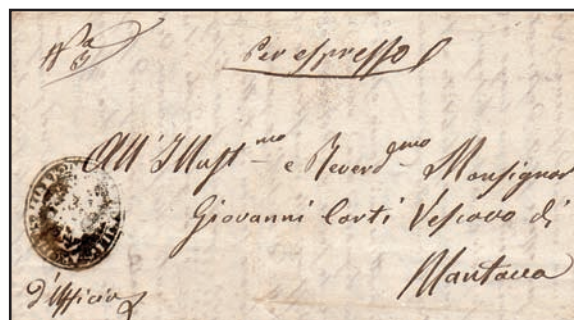 Per espresso
All'Illust-mo e Reverd-mo Monsignor
Giovanni Corti Vescovo di
Mantova
d'Ufficio